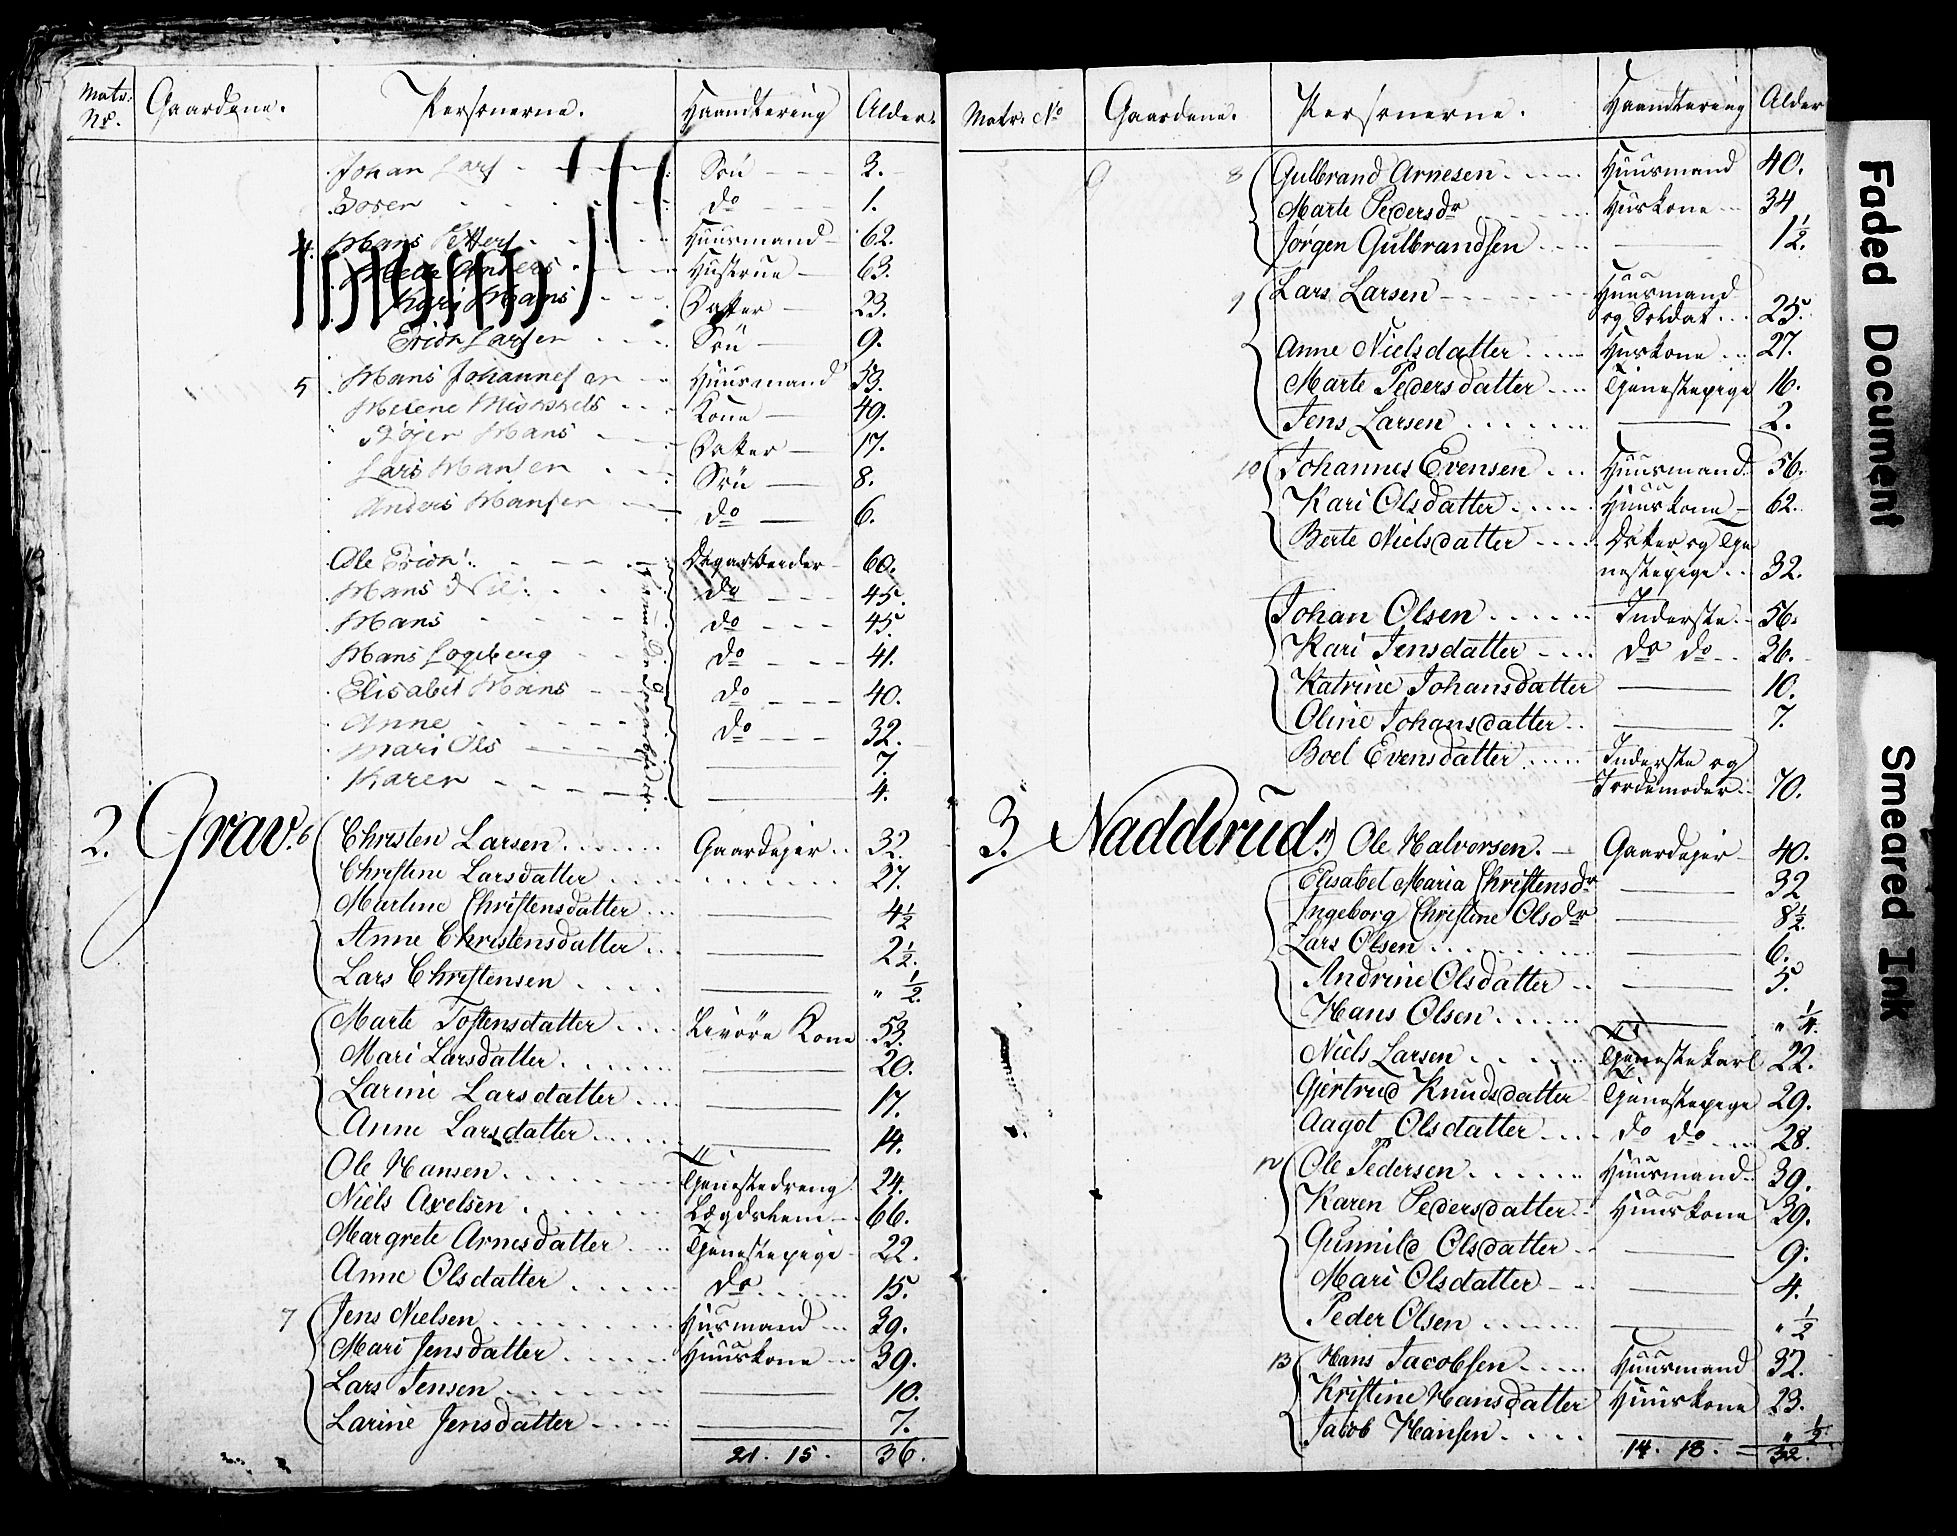 Matr: No. Gaardene. Personerne. Haandtering Alder.
Johan Lars Søn 3.
do 1.
4. Hans Huusmand 62.
Hustrue 63.
Kari Hans Datter 23.
Erich Larsen Søn 9.
5 Hans Johannesen Huusmand 53.
Helene Kone 49.
Hans Datter 17.
Lars Hansen Søn 8.
Anders Hansen do 6.
Ole Erich: Dagarbeider 60.
Hans Nil: do 45.
Hans do 45.
Hans Løgeberg do 41.
Elisabet Hans do 40.
Anne do 32.
Mari Ols 7.
Karen 4.
2. Grav. 6 Christen Larsen Gaardejer 32.
Christine Larsdatter 27.
Martine Christensdatter 4 1/2
Anne Christensdatter 2 1/2.
Lars Christensen " 1/2.
Marte Tostensdatter Livøre Kone 53.
Mari Larsdatter 20.
Larine Larsdatter 17.
Anne Larsdatter 14.
Ole Hansen Tjenestedreng 24.
Niels Axelsen Lægdslem 66.
Margrete Arnesdatter Tjenestepige 22.
Anne Olsdatter do 15.
7 Jens Nielsen Husmand 39.
Mari Jensdatter Huuskone 39.
Lars Jensen 10.
Larine Jensdatter 7.
21. 15. 36.
Matr. No Gaardene. Personerne. Haandtering Alder
8 Gulbrand Arnesen Huusmand 40.
Marte Pedersdr Huskone 34
Jørgen Gulbrandsen 1 1/2.
9 Lars Larsen Huusmand
og Soldat 25.
Anne Nielsdatter Huskone 27.
Marte Pedersdatter Tjenestepige 16.
Jens Larsen 2.
10 Johannes Evensen Huusmand 56.
Kari Olsdatter Huuskone 62.
Berte Nielsdatter Datter og Tje
nestepige 32.
Johan Olsen Inderste 56.
Kari Jensdatter do do 36.
Katrine Johansdatter 10.
Oline Johansdatter 7.
Boel Evensdatter Inderste og
Jordemoder 70.
3. Nadderud. 11) Ole Halvorsen. Gaardejer 40.
Elisabet Maria Christensdr 32
Ingeborg Christine Olsdr 8 1/2.
Lars Olsen 6.
Andrine Olsdatter 5.
Hans Olsen " 1/4.
Niels Larsen Tjenestekarl 22.
Gjertrud Knudsdatter Tjenestepige 29.
Aagot Olsdatter do do 28.
12 Ole Pedersen Huusmand 39.
Karen Pedersdatter Huuskone 39.
Gunnild Olsdatter 9.
Mari Olsdatter 4.
Peder Olsen " 1/2
13 Hans Jacobsen Huusmand 32.
Kristine Hansdatter Huuskone 23.
Jacob Hansen
14. 18. 32.
Faded Document
Smeared Ink